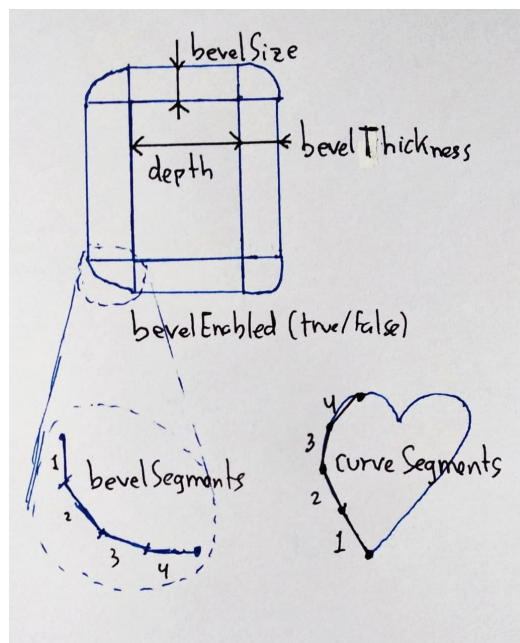 bevelSize
bevelThickness
depth
bevelEnabled (true/false)
4
3
curve Segments
2
1
1
bevelSegments
2
3
4